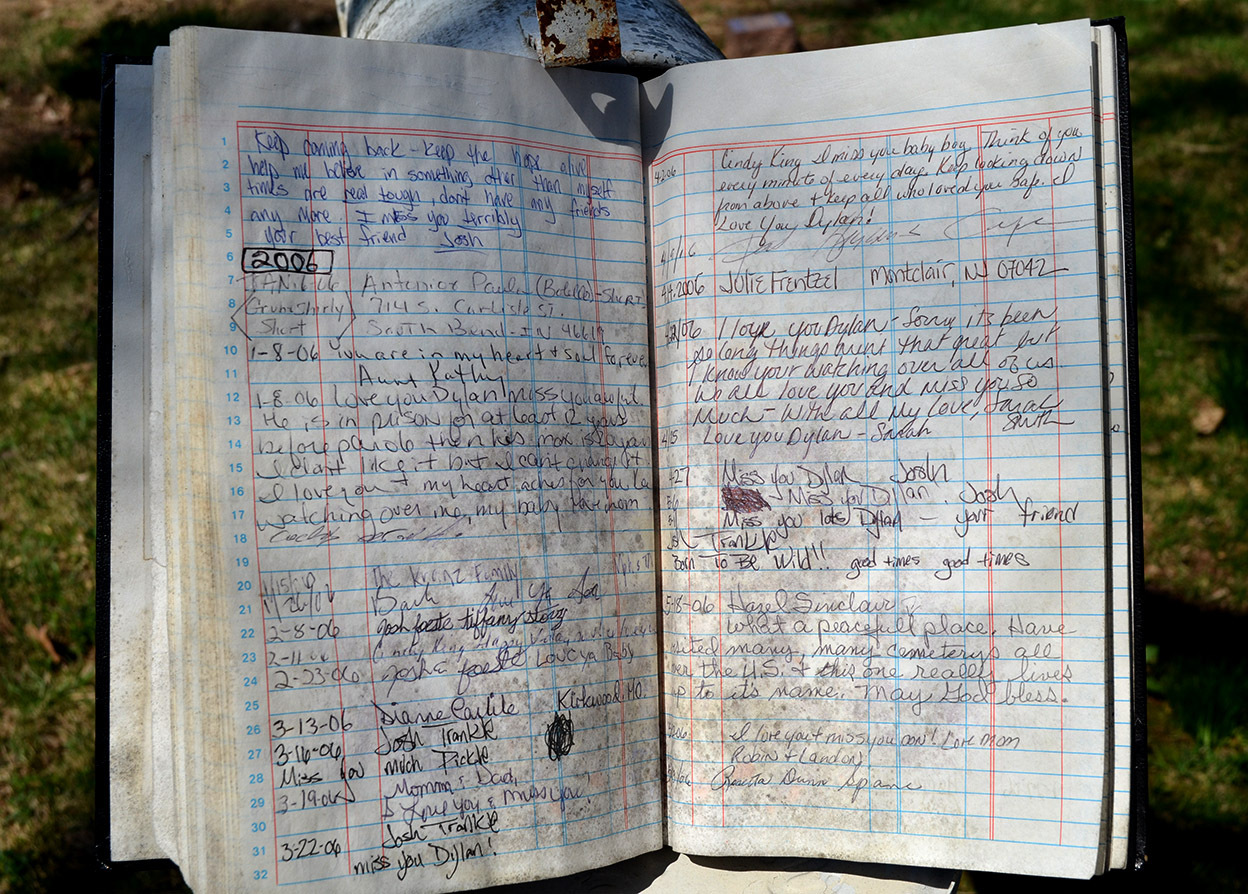 Keep coming back - Keep the hope alive
help me believe in something other than myself
times are real tough, dont have any friends
any more I miss you terribly
your best friend Josh
2006
JAN. 6 06 Antonior Paula
Grumshirly 714 S. Carlisle St.
Short South Bend - IN 46619
1-8-06 You are in my heart & soul forever
Aunt Kathy
1-8-06 I love you Dylan miss you awful.
He is in prison for at least 12 years
before parole then his max is years
I don't like it but I can't change it
I love you & my heart aches for you
watching over me, my baby Love mom
The Family
1/26/06
2-8-06 josh foete tiffany story
2-11-06 Cindy King
2-23-06 josha foete Lovcya Bobby
3-13-06 Dianne Carlile Kirkwood, MO.
3-16-06 Josh Trankle
Miss you much Pickle
3-19-06 Momma & Dad,
I Love you & miss you!
Josh Trankle
3-22-06
miss you Dylan!
1
2
3
4
5
6
7
8
9
10
11
12
13
14
15
16
17
18
19
20
21
22
23
24
25
26
27
28
29
30
31
32
4-2-06 Cindy King I miss you baby boy. Think of you
every minute of every day. Keep looking down
from above & keep all who loved you safe. I
Love You Dylan!
4.4.2006 Julie Frentzel Montclair, NJ 07042
I love you Dylan - Sorry its been
so long things arent that great but
I know your watching over all of us
We all love you and miss you so
Much - With all my love, Sarah
Smith
4/15 Love you Dylan - Sarah
4-27 Miss you Dylan Josh
Miss you Dylan. Josh
Miss you lots Dylan - your friend
Josh Trankle
Born To Be Wild!! good times good times
5-18-06 Hazel Sinclair
What a peacefull place. Have
visited many, many cemeterys all
over the U.S. & this one really lives
up to it's name. May God bless.
I love you & miss you son! Love mom
Robin & Landon